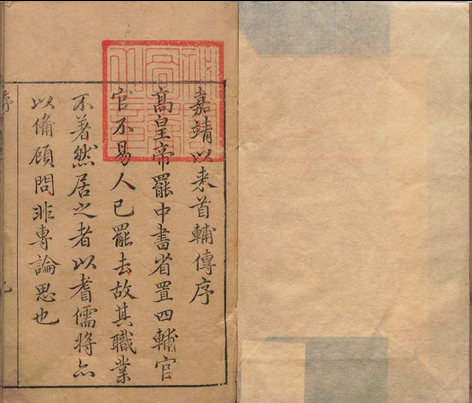 嘉靖以来首輔傳序
髙皇帝罷中書省置四輔官
官不易人已罷去故其職業
不著然居之者以耆儒將亦
以俻顧問非專論思也
序